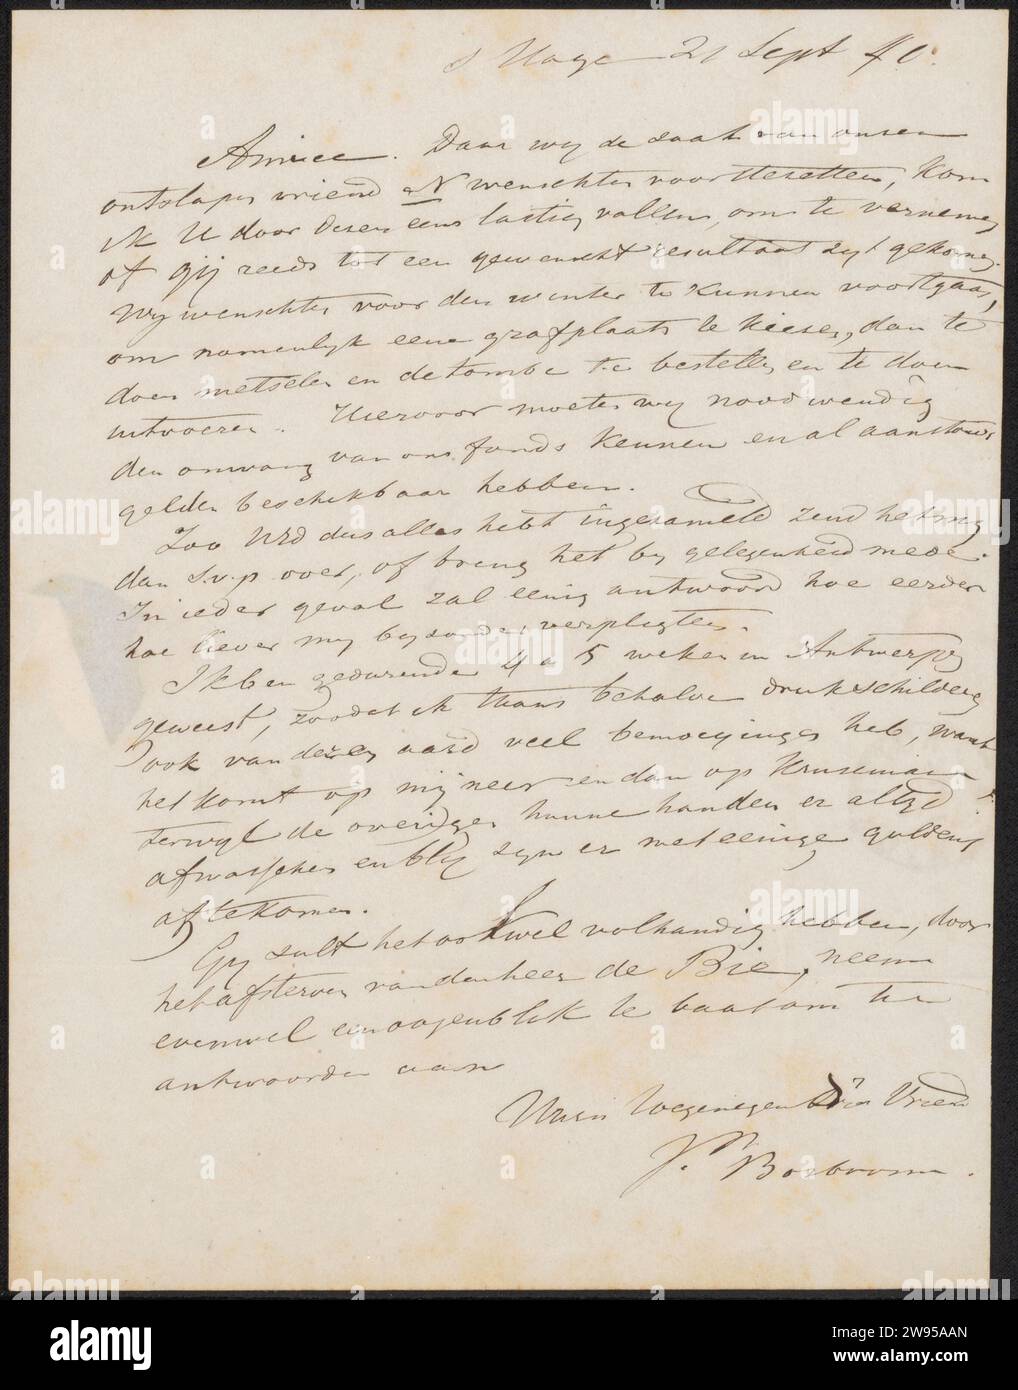 s Hage 21 Sept 40.
Amice. Daar wij de zaak van onzen
ontslapen vriend N wenschten voorttezetten, kom
ik U door dezen eens lastig vallen, om te vernemen
of gij reeds tot een gewenscht resultaat zijt gekomen.
Wij wenschten voor den winter te kunnen voortgaan,
om namenlijk eene grafplaats te kiezen, dan te
doen metselen en de tombe te bestellen en te doen
uitvoeren. Hiervoor moeten wij noodwendig
den omvang van ons fonds kennen en al aanstonds
gelden beschikbaar hebben.
Zoo UEd dus alles hebt ingezameld zend het mij
dan s.v.p over, of breng het bij gelegenheid mede.
In ieder geval zal eenig antwoord hoe eerder
hoe liever mij bijzonder verpligten.
Ik ben gedurende 4 a 5 weken in Antwerpen
geweest, zoodat ik thans behalve druk schilderen
ook van dezen aard veel bemoeijingen heb, want
het komt op mij neer en dan op Kruseman
terwijl de overigen hunne handen er altijd
afwasschen en blij zijn er met eenige guldens
af te komen.
Gij zult het ook wel volhandig hebben, door
het afsterven van den heer de Bie, neem
evenwel een oogenblik te baat om te
antwoorden aan
Uwen toegenegen Vriend
J. Bosboom.
alamy
alamy
alamy
alamy
alamy
alamy
alamy
2W95AAN
Image ID: 2W95AAN
www.alamy.com